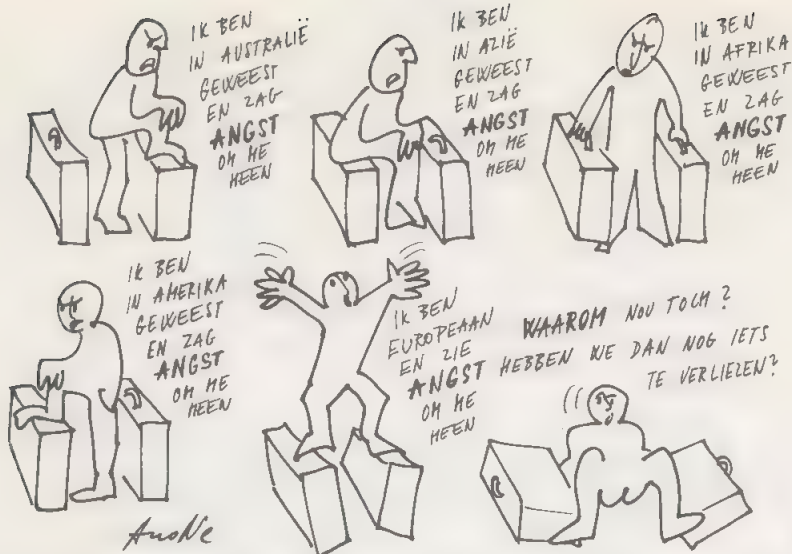 IK BEN
IN AUSTRALIË
GEWEEST
EN ZAG
ANGST
OM ME
HEEN
IK BEN
IN AZIË
GEWEEST
EN ZAG
ANGST
OM ME
HEEN
IK BEN
IN AFRIKA
GEWEEST
EN ZAG
ANGST
OM ME
HEEN
IK BEN
IN AMERIKA
GEWEEST
EN ZAG
ANGST
OM ME
HEEN
IK BEN
EUROPEAAN
EN ZIE
ANGST
OM ME
HEEN
WAAROM NOU TOCH?
HEBBEN WE DAN NOG IETS
TE VERLIEZEN?